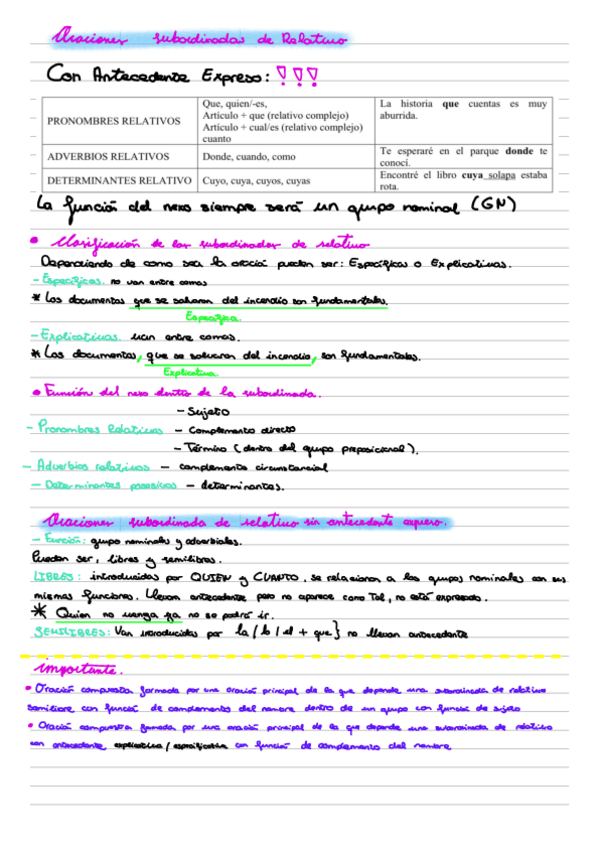 Oraciones subordinadas de Relativo
Con Antecedente Expreso: !!!
PRONOMBRES RELATIVOS
Que, quien/-es,
Artículo + que (relativo complejo)
Artículo + cual/es (relativo complejo)
cuanto
La historia que cuentas es muy
aburrida.
ADVERBIOS RELATIVOS
Donde, cuando, como
Te esperaré en el parque donde te
conocí.
DETERMINANTES RELATIVO
Cuyo, cuya, cuyos, cuyas
Encontré el libro cuya solapa estaba
rota.
La función del nexo siempre será un grupo nominal (GN)
• Clasificación de las subordinadas de relativo
Dependiendo de como sea la oració pueden ser: Específicas o Explicativas.
- Específicas. no van entre comas
* Los documentos que se salvaron del incendio son fundamentales.
Específica.
- Explicativas. van entre comas.
* Los documentos, que se salvaron del incendio, son fundamentales.
Explicativa
• Función del nexo dentro de la subordinada.
- Sujeto
- Pronombres Relativos - Complemento directo
- Término (dentro del grupo preposicional).
- Adverbios relativos - complemento circunstancial
- Determinantes posesivos - determinantes.
Oraciones subordinada de relativo sin antecedente expreso.
- Función: grupo nominales y adverbiales.
Pueden ser, libres y semilibres.
LIBRES: introducidas por QUIEN y CUANTO. se relacionan a los grupos nominales con sus
mismas funciones. Llevan antecedente pero no aparece como Tal, no está expresado.
* Quien no venga ya no se podrá ir.
SEMILIBRES: Van introducidas por la / lo / el + que } no llevan antecedente
importante.
• Oración compuesta formada por una oración principal de la que depende una subordinada de relativo
semilibre con función de complemento del nombre dentro de un grupo con función de sujeto
• Oración compuesta formada por una oración principal de la que depende una subordinada de relativo
con antecedente explicativa / especificativa con función de complemento del nombre